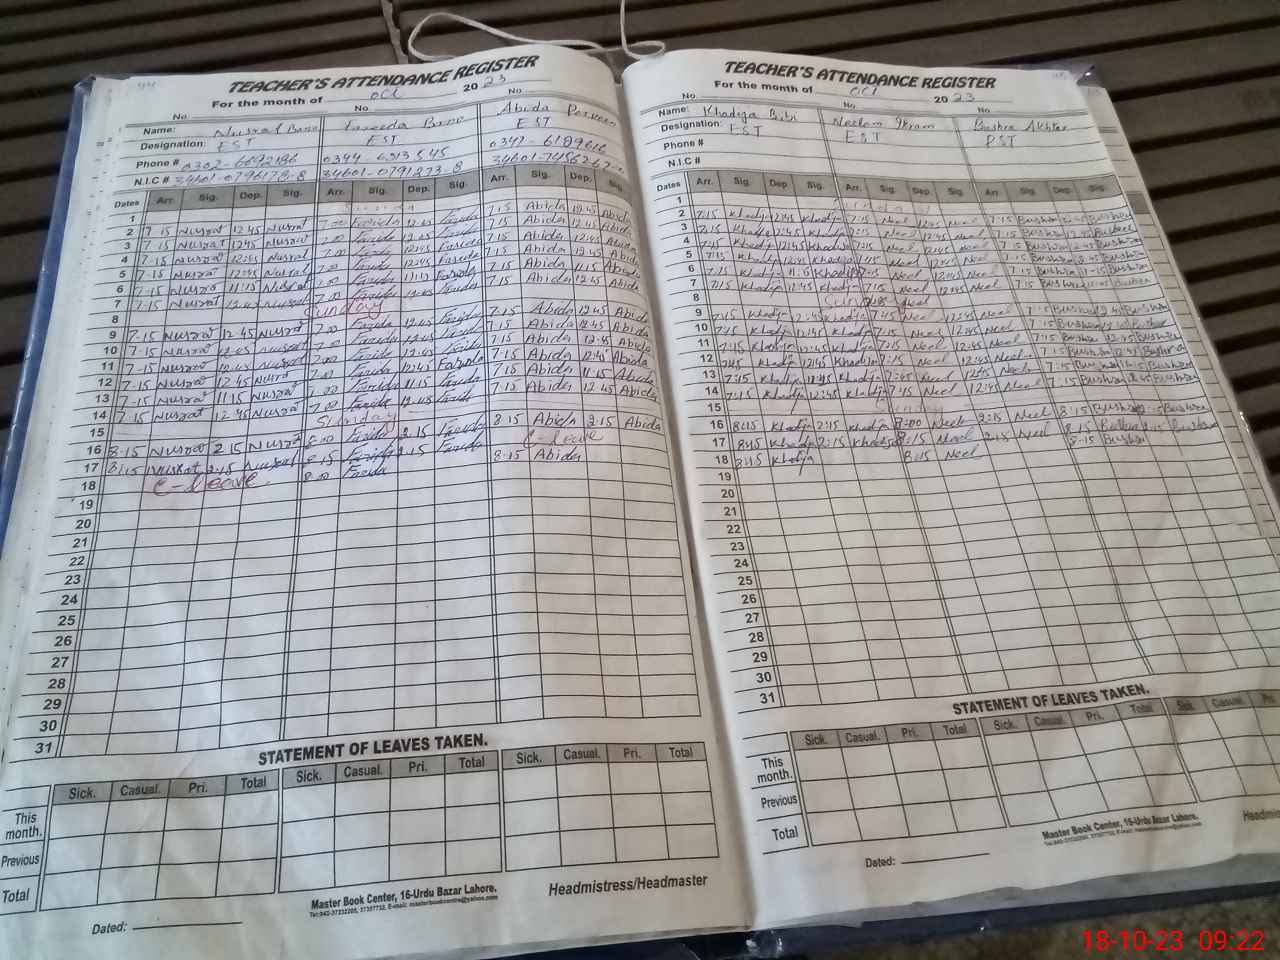 TEACHER'S ATTENDANCE REGISTER
For the month of oct 2023
No. No No.
Name: Nusrat Bano Fareeda Bano Abida Perveen
Designation: EST EST EST
Phone # 0347-6189616
N.I.C #
Dates Arr. Sig. Dep. Sig. Arr. Sig. Dep. Sig. Arr. Sig. Dep. Sig.
1 Sunday
2 7-15 Nusrat 12 45 Nusrat 7.00 Farida 12.45 Farida 7.15 Abida 12.45 Abida
3 7-15 Nusrat 12 45 Nusrat 7.00 Farida 12.45 Farida 7.15 Abida 12.45 Abida
4 7-15 Nusrat 12:45 Nusrat 7.00 Farida 12.45 Farida 7.15 Abida 12.45 Abida
5 7-15 Nusrat 12:45 Nusrat 7.00 Farida 12.45 Farida 7.15 Abida 12.45 Abida
6 7-15 Nusrat 11:15 Nusrat 7.00 Farida 11.15 Farida 7.15 Abida 11.15 Abida
7 7-15 Nusrat 12.45 Nusrat 7.00 Farida 12.45 Farida 7.15 Abida 12.45 Abida
8 Sunday
9 7.15 Nusrat 12.45 Nusrat 7.00 Farida 12.45 Farida 7.15 Abida 12.45 Abida
10 7-15 Nusrat Nusrat 7.00 Farida 12.45 Farida 7.15 Abida 12.45 Abida
11 7-15 Nusrat Nusrat 7.00 Farida 12.45 Farida 7.15 Abida 12.45 Abida
12 7-15 Nusrat 12.45 Nusrat 7.00 Farida 12.45 Farida 7.15 Abida 12.45 Abida
13 7-15 Nusrat 11.15 Nusrat 7.00 Farida 11.15 Farida 7.15 Abida 11.15 Abida
14 7-15 Nusrat 12.45 Nusrat 7.00 Farida 12.45 Farida 7.15 Abida 12.45 Abida
15 Sunday
16 8-15 Nusrat 2 15 Nusrat 8.00 Farida 2.15 Farida 8.15 Abida 2.15 Abida
17 8:15 Nusrat 2.15 Nusrat 8.15 Farida 2.15 Farida C-leave
18 C-leave 8.00 Farida 8.15 Abida
19
20
21
22
23
24
25
26
27
28
29
30
31
STATEMENT OF LEAVES TAKEN.
Sick. Casual. Pri. Total Sick. Casual. Pri. Total Sick. Casual. Pri. Total
This month.
Previous
Total
Master Book Center, 16-Urdu Bazar Lahore.
Headmistress/Headmaster
Dated:
TEACHER'S ATTENDANCE REGISTER
For the month of oct 2023
No. No No.
Name: Khadija Bibi Neelam Ikram Bushra Akhtar
Designation: EST EST PST
Phone #
N.I.C #
Dates Arr. Sig. Dep Sig. Arr. Sig. Dep. Sig. Arr. Sig. Dep. Sig.
1 Sunday
2 7:15 Khadija 12:45 Khadija 7:15 Neel 12:45 Neel 7:15 Bushra 12:45 Bushra
3 7:15 Khadija 12:45 Khadija 7:15 Neel 12:45 Neel 7:15 Bushra 12:45 Bushra
4 Khadija 12:45 Khadija 7:15 Neel 12:45 Neel 7:15 Bushra 12:45 Bushra
5 Khadija 12:45 Khadija 7:15 Neel 12:45 Neel 7:15 Bushra 12:45 Bushra
6 7:15 Khadija Khadija 7:15 Neel Neel 7:15 Bushra 11:15 Bushra
7 7:15 Khadija 12:45 Khadija 7:15 Neel 12:45 Neel 7:15 Bushra Bushra
8 Sunday
9 7:15 Khadija 12:45 Khadija Neel 12:45 Neel 7:15 Bushra 12:45 Bushra
10 7:15 Khadija 12:45 Khadija 7:15 Neel 12:45 Neel 7:15 Bushra 12:45 Bushra
11 7:15 Khadija 12:45 Khadija Neel 12:45 Neel 7:15 Bushra 12:45 Bushra
12 Khadija 12:45 Khadija 7:15 Neel 12:45 Neel 7:15 Bushra Bushra
13 7:15 Khadija Khadija Neel Neel 7:15 Bushra Bushra
14 7:15 Khadija 12:45 Khadija 7:15 Neel 12:45 Neel
15 Sunday
16 8:15 Khadija 2:15 Khadija 8:00 Neel 2:15 Neel 8:15 Bushra 2:15 Bushra
17 Khadija 2:15 Khadija 8:15 Neel 2:15 Neel 8:15 Bushra 2:15 Bushra
18 8:15 Khadija 8:15 Neel 8-15 Bushra
19
20
21
22
23
24
25
26
27
28
29
30
31
STATEMENT OF LEAVES TAKEN.
Sick. Casual. Pri. Total Sick. Casual. Pri. Total Sick. Casual. Pri. Total
This month.
Previous
Total
Master Book Center, 16-Urdu Bazar Lahore.
Headmis
Dated:
18-10-23 09:22